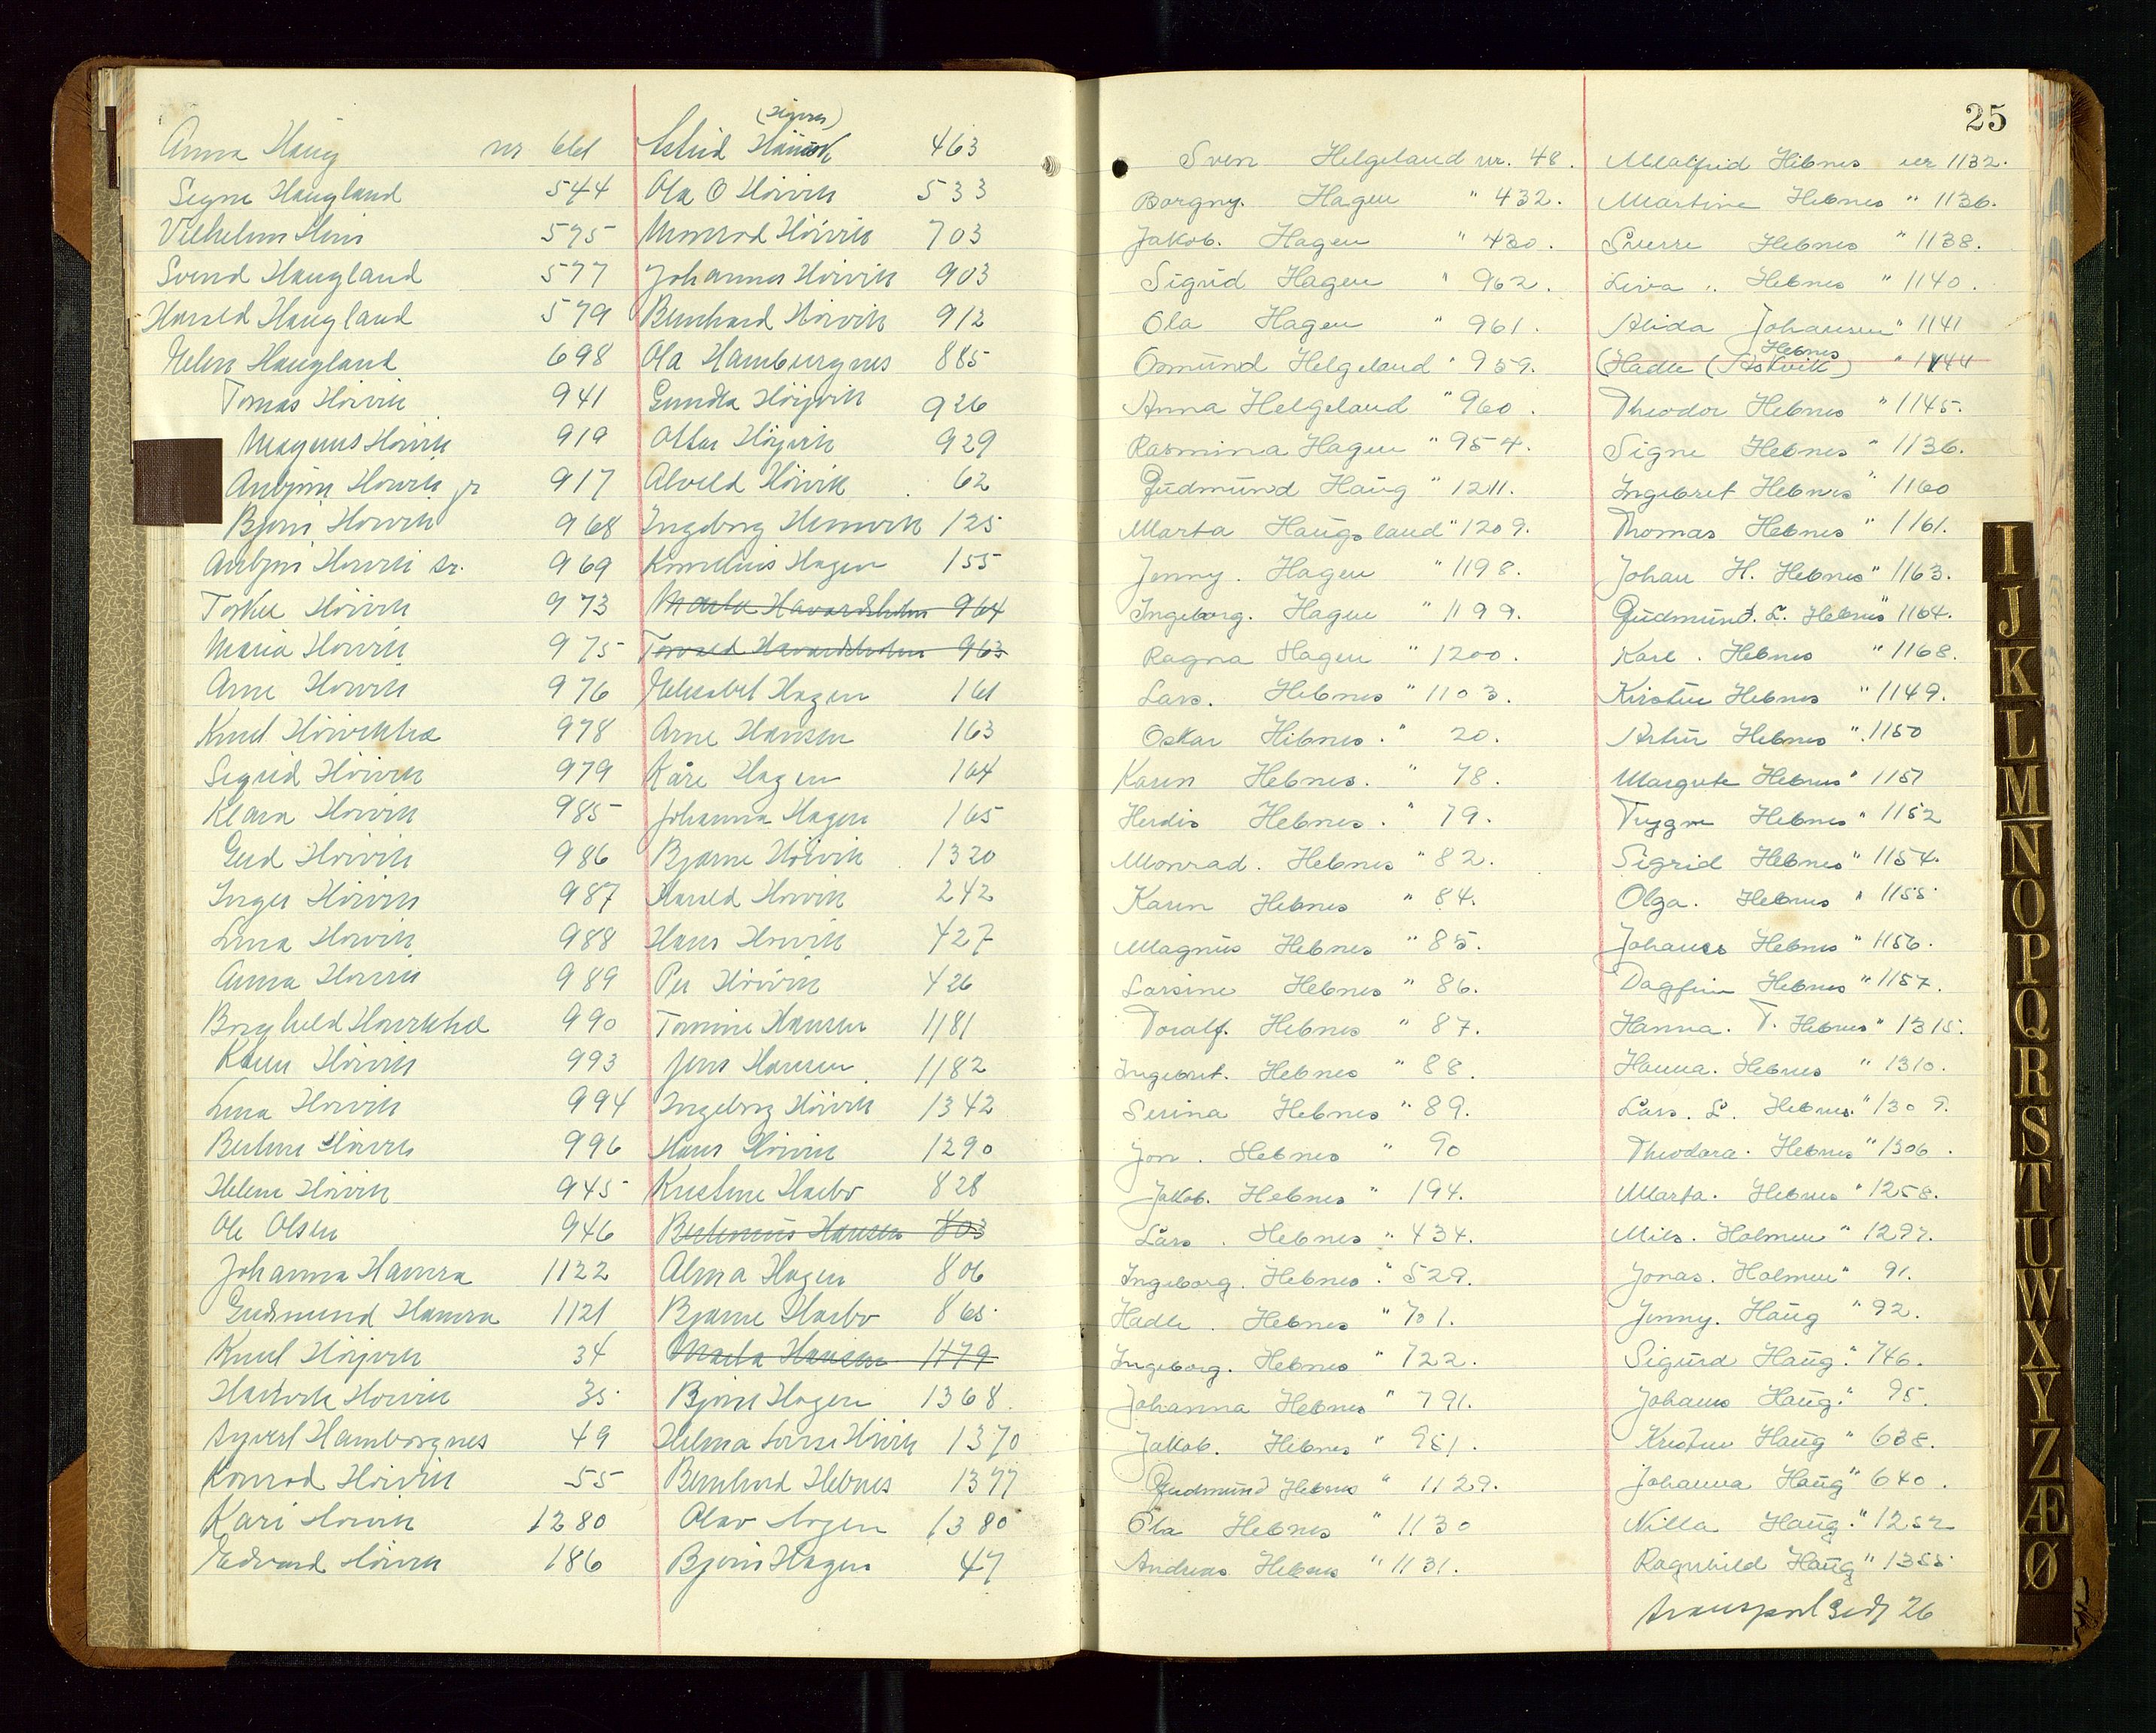 Anna Haug nr 661
Signe Haugland 544
Vilhelm 575
Svend Haugland 577
Harald Haugland 579
Helen Haugland 698
Tomas Höivik 941
Magnus Höivik 919
Anbjörn Höivik jr 917
Björn Höivik 968
Anbjörn Höivik sr. 969
Torkel Höivik 973
Maria Höivik 975
Arne Höivik 976
Knut 978
Sigrid Höivik 979
Klara Höivik 985
Gud Höivik 986
Inger Höivik 987
Lina Höivik 988
Anna Höivik 989
Borghild 990
Karen Höivik 993
Lina Höivik 994
Berline Höivik 996
Helene Höivik 945
Ole Olsen 946
Johanna Hamra 1122
Gudmund Hamra 1121
Knut Höijvik 34
Hartvik Höivik 35
Syvert Hamborgnes 49
Konrad Höivik 55
Kari Höivik 1280
Edvard Höivik 186
Astrid 463
Ola O Höivik 533
Monrad Höivik 703
Johannes Höivik 903
Bernhard Höivik 912
Ola Hamburgnes 885
Gunda Höijvik 926
Ottar Höijvik 929
Alveld Höivik 62
Ingeborg 125
Kornelius Hagen 155
Marta Havardsholm 964
Torvald Havardsholm 963
Elisabet Hagen 161
Arne Hansen 163
Kåre Hagen 164
Johanna Hagen 165
Bjarne Höivik 1320
Harald Höivik 242
Hans Höivik 427
Per Höivik 426
Tomine Hansen 1181
Jens Hansen 1182
Ingeborg Höivik 1342
Hans Höivik 1290
Kristine Haebo 828
Hansen 803
Alma Hagen 806
Bjarne Haebo 865
Marta Hansen 1179
Björn Hagen 1368
Helma Höivik 1370
Bernhard Hebnes 1377
Olav Hagen 1380
Björn Hagen 47
25
Sven Helgeland nr. 48.
Borgny. Hagen " 432.
Jakob. Hagen " 430.
Sigrid Hagen " 962.
Ola Hagen " 961.
Osmund Helgeland " 959.
Anna Helgeland " 960.
Rasmina Hagen " 954.
Gudmund Haug " 1211.
Marta Haugsland " 1209.
Jenny. Hagen " 1198.
Ingeborg. Hagen " 1199.
Ragna Hagen " 1200.
Lars. Hebnes " 1103.
Oskar Hebnes. " 20.
Karen Hebnes. " 78.
Herdis Hebnes. " 79.
Monrad. Hebnes " 82.
Karen Hebnes " 84.
Magnus Hebnes " 85.
Larsine Hebnes " 86.
Toralf. Hebnes " 87.
Ingebret. Hebnes " 88.
Serina Hebnes " 89.
Jon. Hebnes " 90
Jakob. Hebnes " 194.
Lars. Hebnes " 434.
Ingeborg. Hebnes. " 529.
Hadle. Hebnes " 701.
Ingeborg. Hebnes " 722.
Johanna Hebnes " 791.
Jakob. Hebnes " 951.
Gudmund Hebnes " 1129.
Ola Hebnes " 1130
Andreas Hebnes " 1131.
Malfrid Hebnes nr 1132.
Martine Hebnes " 1136.
Sverre Hebnes " 1138.
Liva " Hebnes " 1140.
Alida Johansen " 1141
Hebnes
(Hadle (Astvik) " 1144
Theodor Hebnes " 1145.
Signe Hebnes " 1136.
Ingebret Hebnes " 1160
Thomas Hebnes " 1161.
Johan H. Hebnes " 1163.
Gudmund. L. Hebnes " 1164.
Karl. Hebnes " 1168.
Kirstin Hebnes " 1149.
Artur Hebnes " 1150
Margrete Hebnes " 1151
Trygve Hebnes " 1152
Sigrid Hebnes " 1154.
Olga. Hebnes " 1155
Johanes Hebnes " 1156.
Dagfinn Hebnes " 1157.
Hanna. T. Hebnes " 1315.
Hanna. Hebnes " 1310.
Lars. L. Hebnes. " 1309.
Theodora. Hebnes " 1306.
Marta. Hebnes " 1258.
Nils. Holmen " 1297.
Jonas. Holmen " 91.
Jenny. Haug " 92.
Sigurd Haug. " 746.
Johanes Haug. " 95.
Kristine Haug " 638.
Johanna Haug " 640.
Nilla Haug. " 1252
Ragnhild Haug " 1355
transport side 26
I
J
K
L
M
N
O
P
Q
R
S
T
U
W
X
Y
Z
Æ
Ø